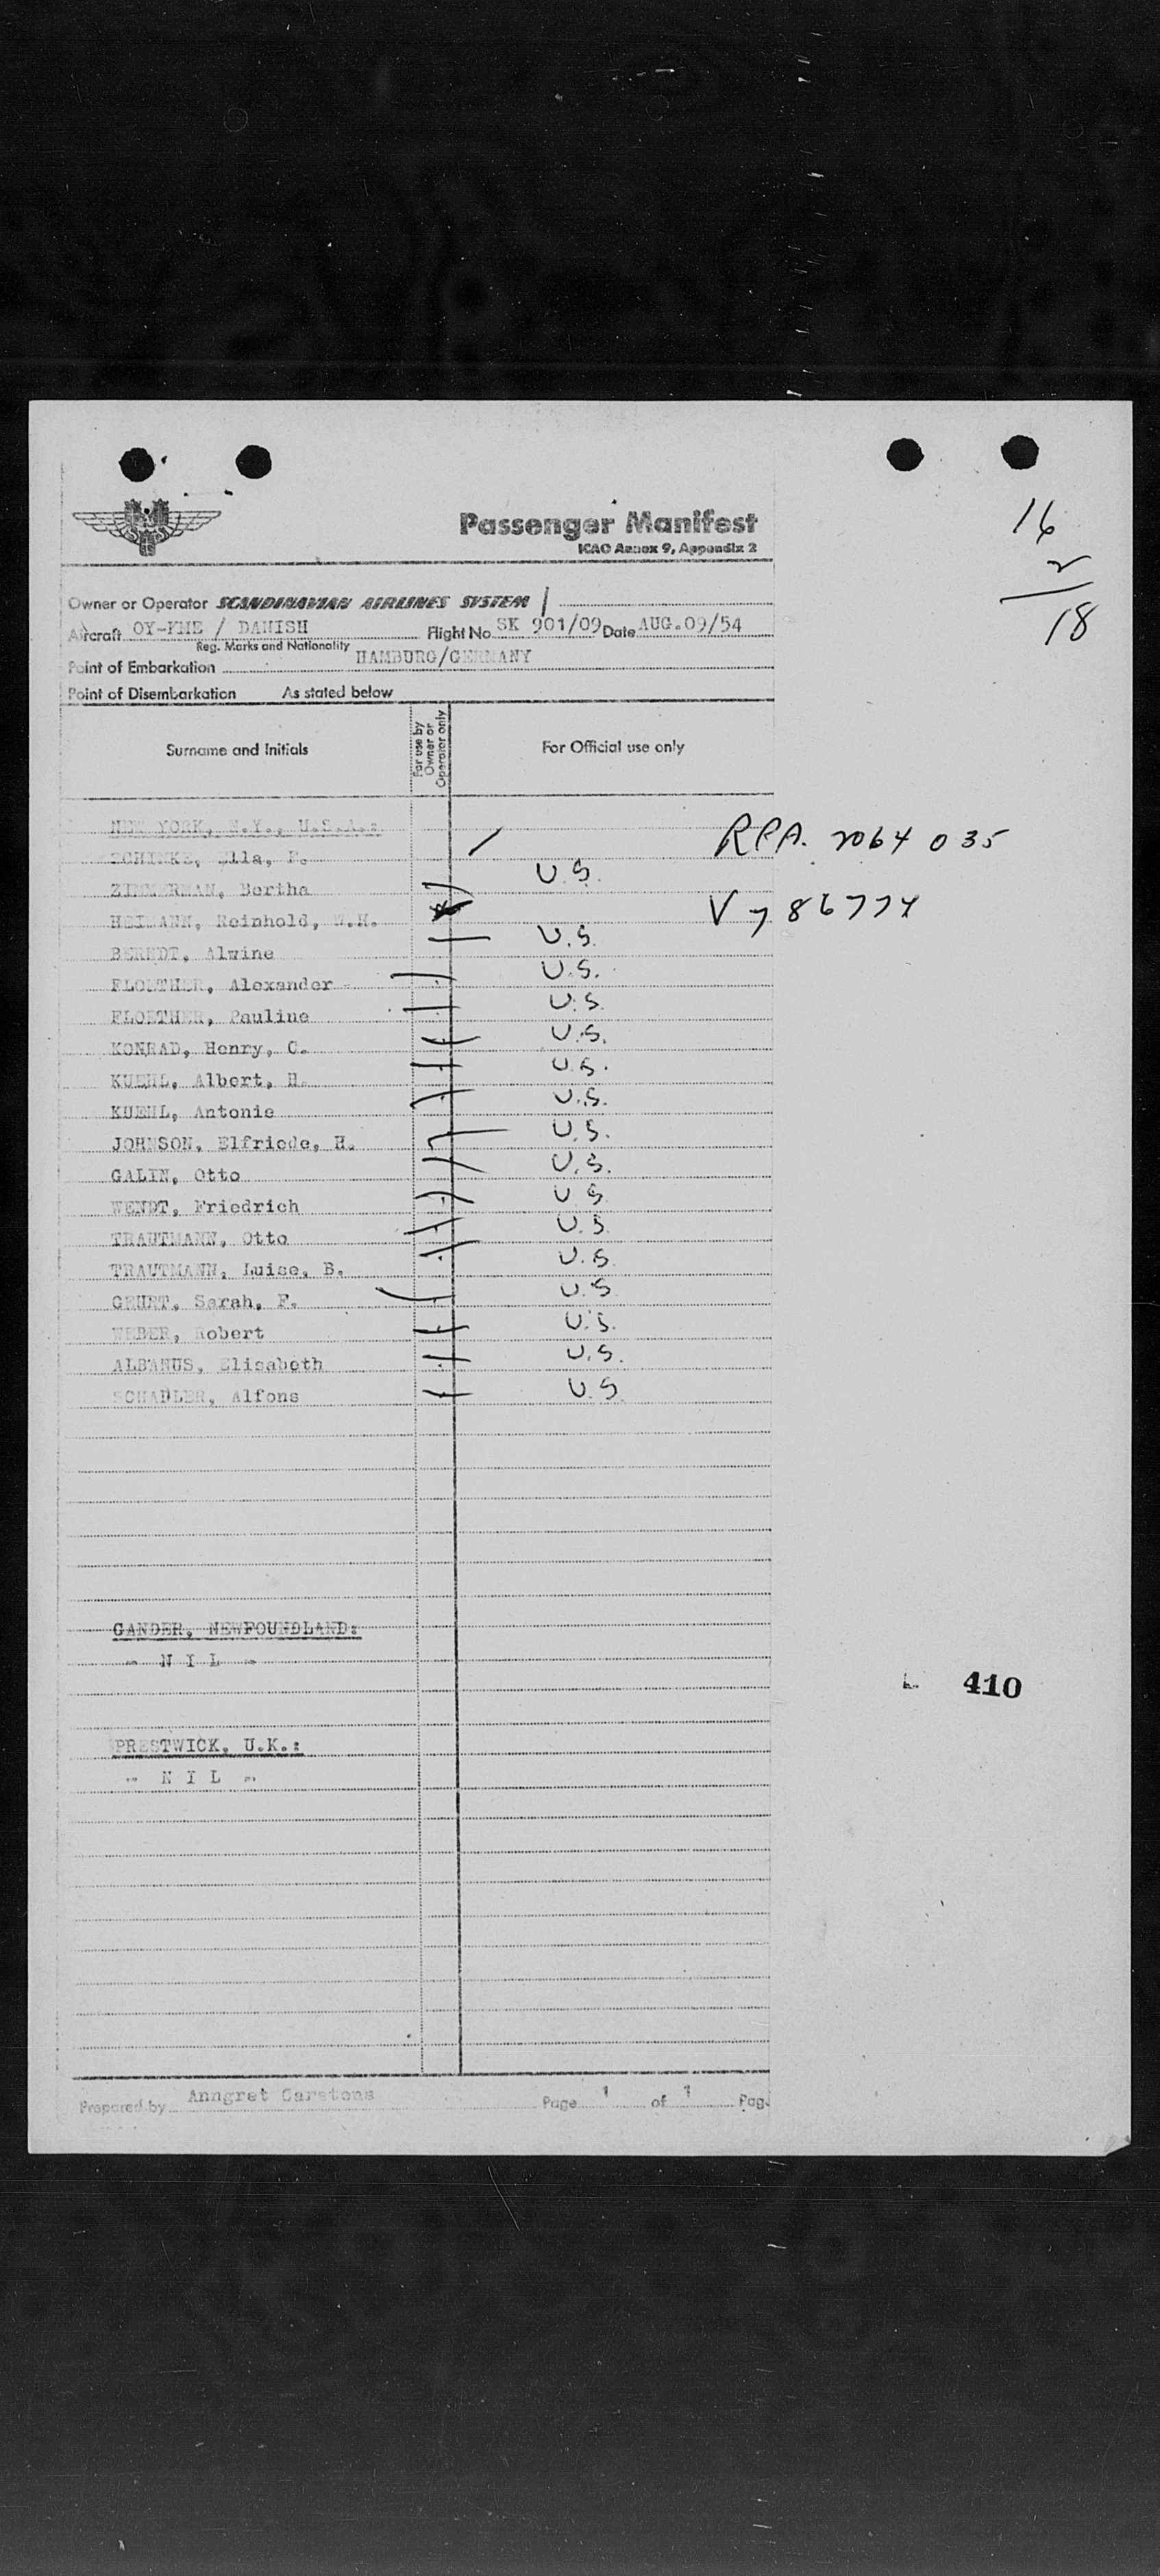 16
2
18
Passenger Manifest
ICAO Annex 9, Appendix 2
Owner or Operator SCANDINAVIAN AIRLINES SYSTEM
Aircraft OY-KME / DANISH Flight No SK 901/09 Date AUG.09/54
Reg. Marks and Nationality
Point of Embarkation HAMBURG/GERMANY
Point of Disembarkation As stated below
Surname and Initials For use by Owner or Operator only For Official use only
NEW YORK, N.Y., U.S.A.:
SCHINKE, Ella, P. RPA. 2064 035
ZIMMERMAN, Bertha U.S.
HEIMANN, Reinhold, W.H. V 786774
BERNDT, Alwine U.S.
FLOETHER, Alexander U.S.
FLOETHER, Pauline U.S.
KONRAD, Henry, C. U.S.
KUEHL, Albert, H. U.S.
KUEHL, Antonie U.S.
JOHNSON, Elfriede, H. U.S.
GALIN, Otto U.S.
WENDT, Friedrich U.S
TRAUTMANN, Otto U.S.
TRAUTMANN, Luise, B. U.S.
GEHRT, Sarah, F. U.S
WEBER, Robert U.S.
ALBANUS, Elisabeth U.S.
SCHADLER, Alfons U.S.
GANDER, NEWFOUNDLAND:
- N I L -
410
PRESTWICK, U.K.:
- N I L -
Prepared by Anngret Carstens Page 1 of 1 Pag.